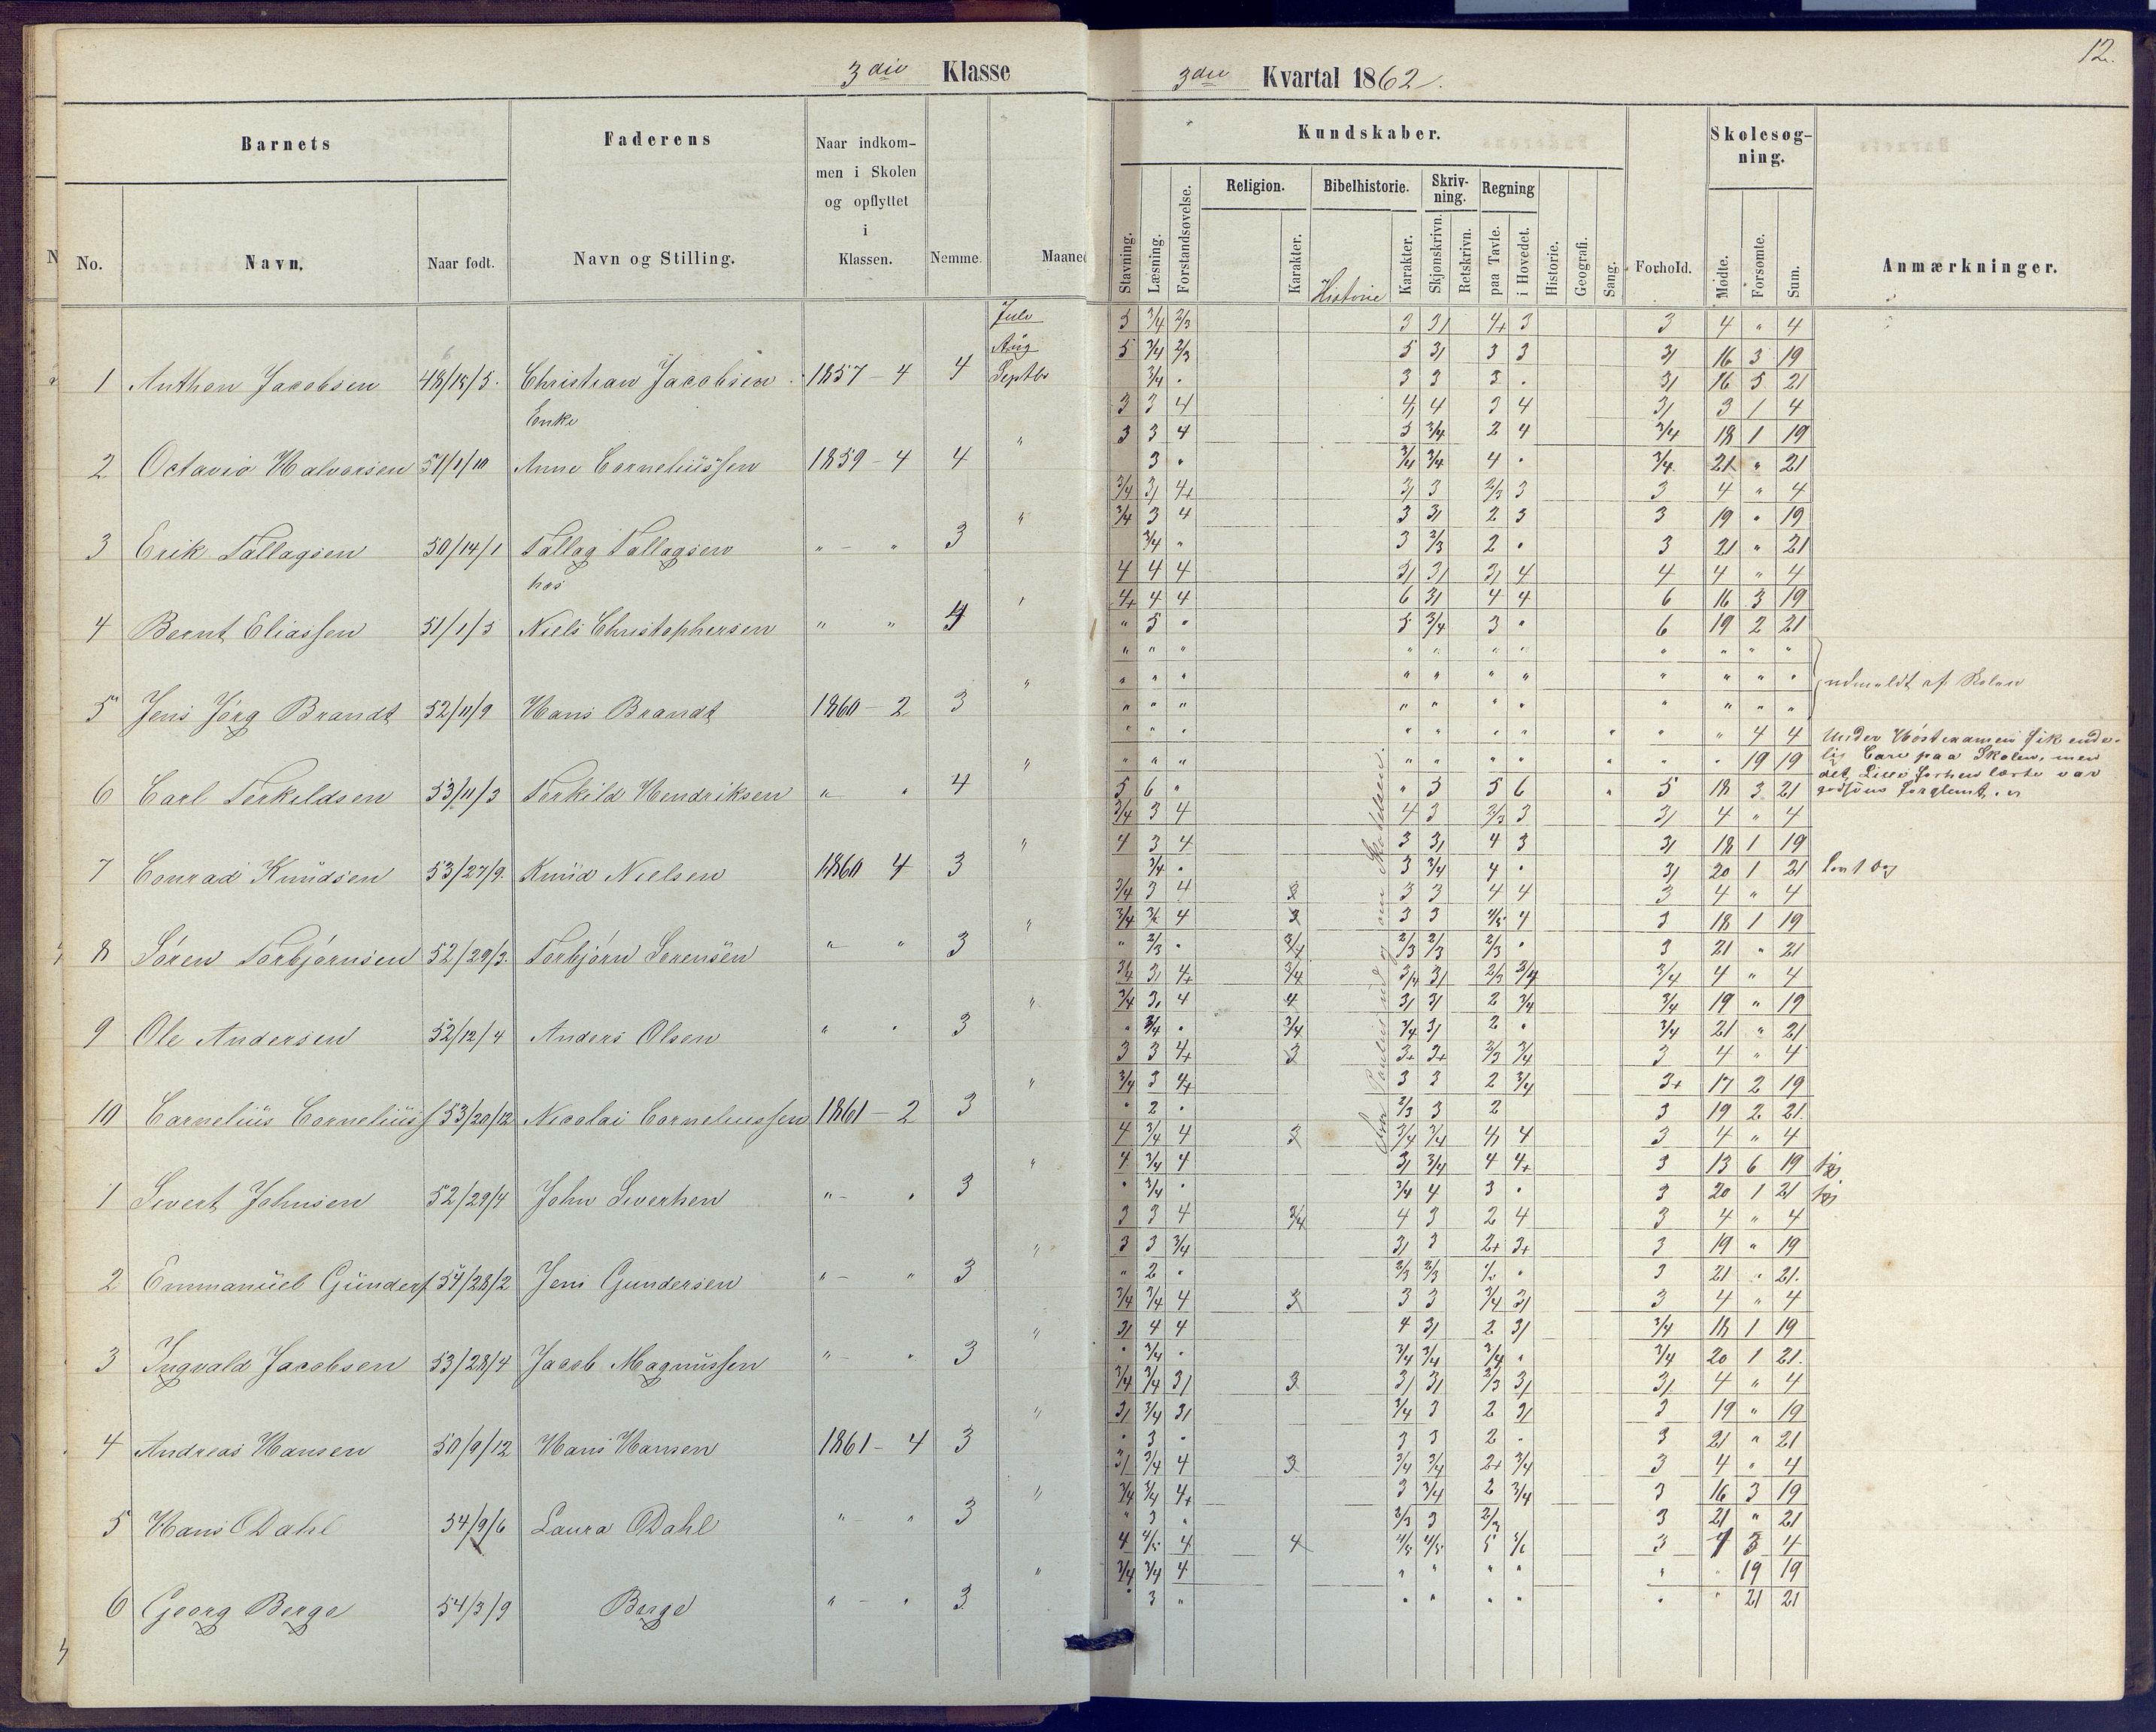 12.
3die Klasse
3die Kvartal 1862.
Barnets
Faderens
Naar indkom-
men i Skolen
og opflyttet
i
Klassen.
Kundskaber.
Skolesøg-
ning.
Religion.
Bibelhistorie.
Skriv-
ning.
Regning
No.
Navn.
Naar født.
Navn og Stilling.
Nemme.
Maaned
Stavning.
Læsning.
Forstandsøvelse.
Karakter.
Historie
Karakter.
Skjønskrivn.
Retskrivn.
paa Tavle.
i Hovedet.
Historie.
Geografi.
Sang.
Forhold.
Mødte.
Forsømte.
Sum.
Anmærkninger.
Juli 5 3/4 2/3 3 3/ 4+ 3 3 4 " 4
Aug 5 3/4 2/3 5 3/ 3 3 3/ 16 3 19
1 Anthon Jacobsen 48/18/5 Christian Jacobsen 1857 - 4 4 Septbr 3/4 " 3 3 3 " 3/ 16 5 21
Enke
3 3 4 4/ 4 3 4 3/ 3 1 4
3 3 4 5 3/4 2 4 3/4 18 1 19
2 Octavio Halvorsen 51/1/10 Anne Corneliussen 1859 - 4 4 " 3 " 3/4 3/4 4 " 3/4 21 " 21
3/4 3/ 4+ 3/ 3 2/3 3 3 4 " 4
3/4 3 4 3 3/ 2 3 3 19 " 19
3 Erik Tallagsen 50/14/1 Tallag Tallagsen " - " 3 " 3/4 " 3 2/3 2 " 3 21 " 21
hos
4 4 4 3/ 3/ 3/ 4 4 4 " 4
4+ 4 4 6 3/ 4 4 6 16 3 19
4 Bernt Eliassen 51/1/5 Niels Christophersen " " 4 " " 5 " 5 3/4 3 " 6 19 2 21
5 Jens Jørg Brandt 52/11/9 Hans Brandt 1860 - 2 3 "
udmeldt af Skolen
" 4 4
" 19 19
6 Carl Terkildsen 53/11/3 Terkild Hendriksen " " 4 " 5 6 " " 3 5 6 5 18 3 21
Under Høstexamen fik ende-
lig Carl paa Skolen, men
det Lidet forhen lærte var
3/4 3 4 4 3 2/3 3 3/ 4 " 4
4 3 4 3 3/ 4 3 3/ 18 1 19
7 Conrad Knudsen 53/27/9 Knud Nielsen 1860 4 3 " 3/4 " 3 3/4 4 " 3/ 20 1 21
3/4 3 4 3 3 3 4 4 3 4 " 4
3/4 3/4 4 3 3 3 4/5 4 3 18 1 19
8 Søren Torbjørnsen 52/29/3 Torbjørn Sørensen " " 3 " " 2/3 " 3/4 2/3 2/3 2/3 " 3 21 " 21
3/4 3/ 4+ 3/4 3/4 3/ 2/3 3/4 3/4 4 " 4
3/4 3/ 4 4 3/ 3/ 2 3/4 3/4 19 " 19
9 Ole Andersen 52/12/4 Anders Olsen " " 3 " " 3/4 " 3/4 3/4 3/ 2 " 3/4 21 " 21
3 3 4+ 3 3+ 3+ 2/3 3/4 3 4 " 4
3/4 3 4+ 3 3 2 3/4 3+ 17 2 19
10 Cornelius Corneliuss 53/20/12 Nicolai Corneliussen 1861 - 2 3 " " 2 " 2/3 3 2 3 19 2 21
4 3/4 4 3 3/4 3/4 4/ 4 3 4 " 4
4 3/4 4 3/ 3/4 4 4+ 3 13 6 19
1 Sivert Johnsen 52/29/4 John Sivertsen " - " 3 " " 3/4 " 3/4 4 3 " 3 20 1 21
3 3 4 3/4 4 3 2 4 3 4 " 4
3 3 3/4 3/ 3 2+ 3+ 3 19 " 19
2 Emmanuel Gunders 54/28/2 Jens Gundersen " - " 3 " " 2 " 2/3 2/3 " 3 21 " 21
3/4 3/4 4 3 3 3 3/4 3/ 3 4 " 4
3/ 4 4 4 3/ 2 3/ 3/4 18 1 19
3 Ingvald Jacobsen 53/28/4 Jacob Magnussen " - " 3 " " 3/4 " 3/4 3/4 3/4 " 3/4 20 1 21
3/4 3/4 3/ 3 3/ 3/ 2/3 3/ 3/ 4 " 4
3/ 3/4 3/ 3/4 3 2 3/ 3 19 " 19
4 Andreas Hansen 50/9/12 Hans Hansen 1861 - 4 3 " " 3 " 3 3 2 " 3 21 " 21
3/ 3/4 4 3 3/4 3/4 2+ 3/4 3 4 " 4
3/4 3/4 4+ 3 3/4 2 3/4 3 16 3 19
5 Hans Dahl 54/9/6 Laura Dahl " - " 3 " " 3 " 2/3 3 2/3 3 21 " 21
4 4/5 4 4 4/5 4/5 5 3 1 3 4
3/4 3/4 4 " " " " " " 19 19
6 Georg Berge 54/3/9 Berge " - " 3 " " 3 " " " " " " " 21 21